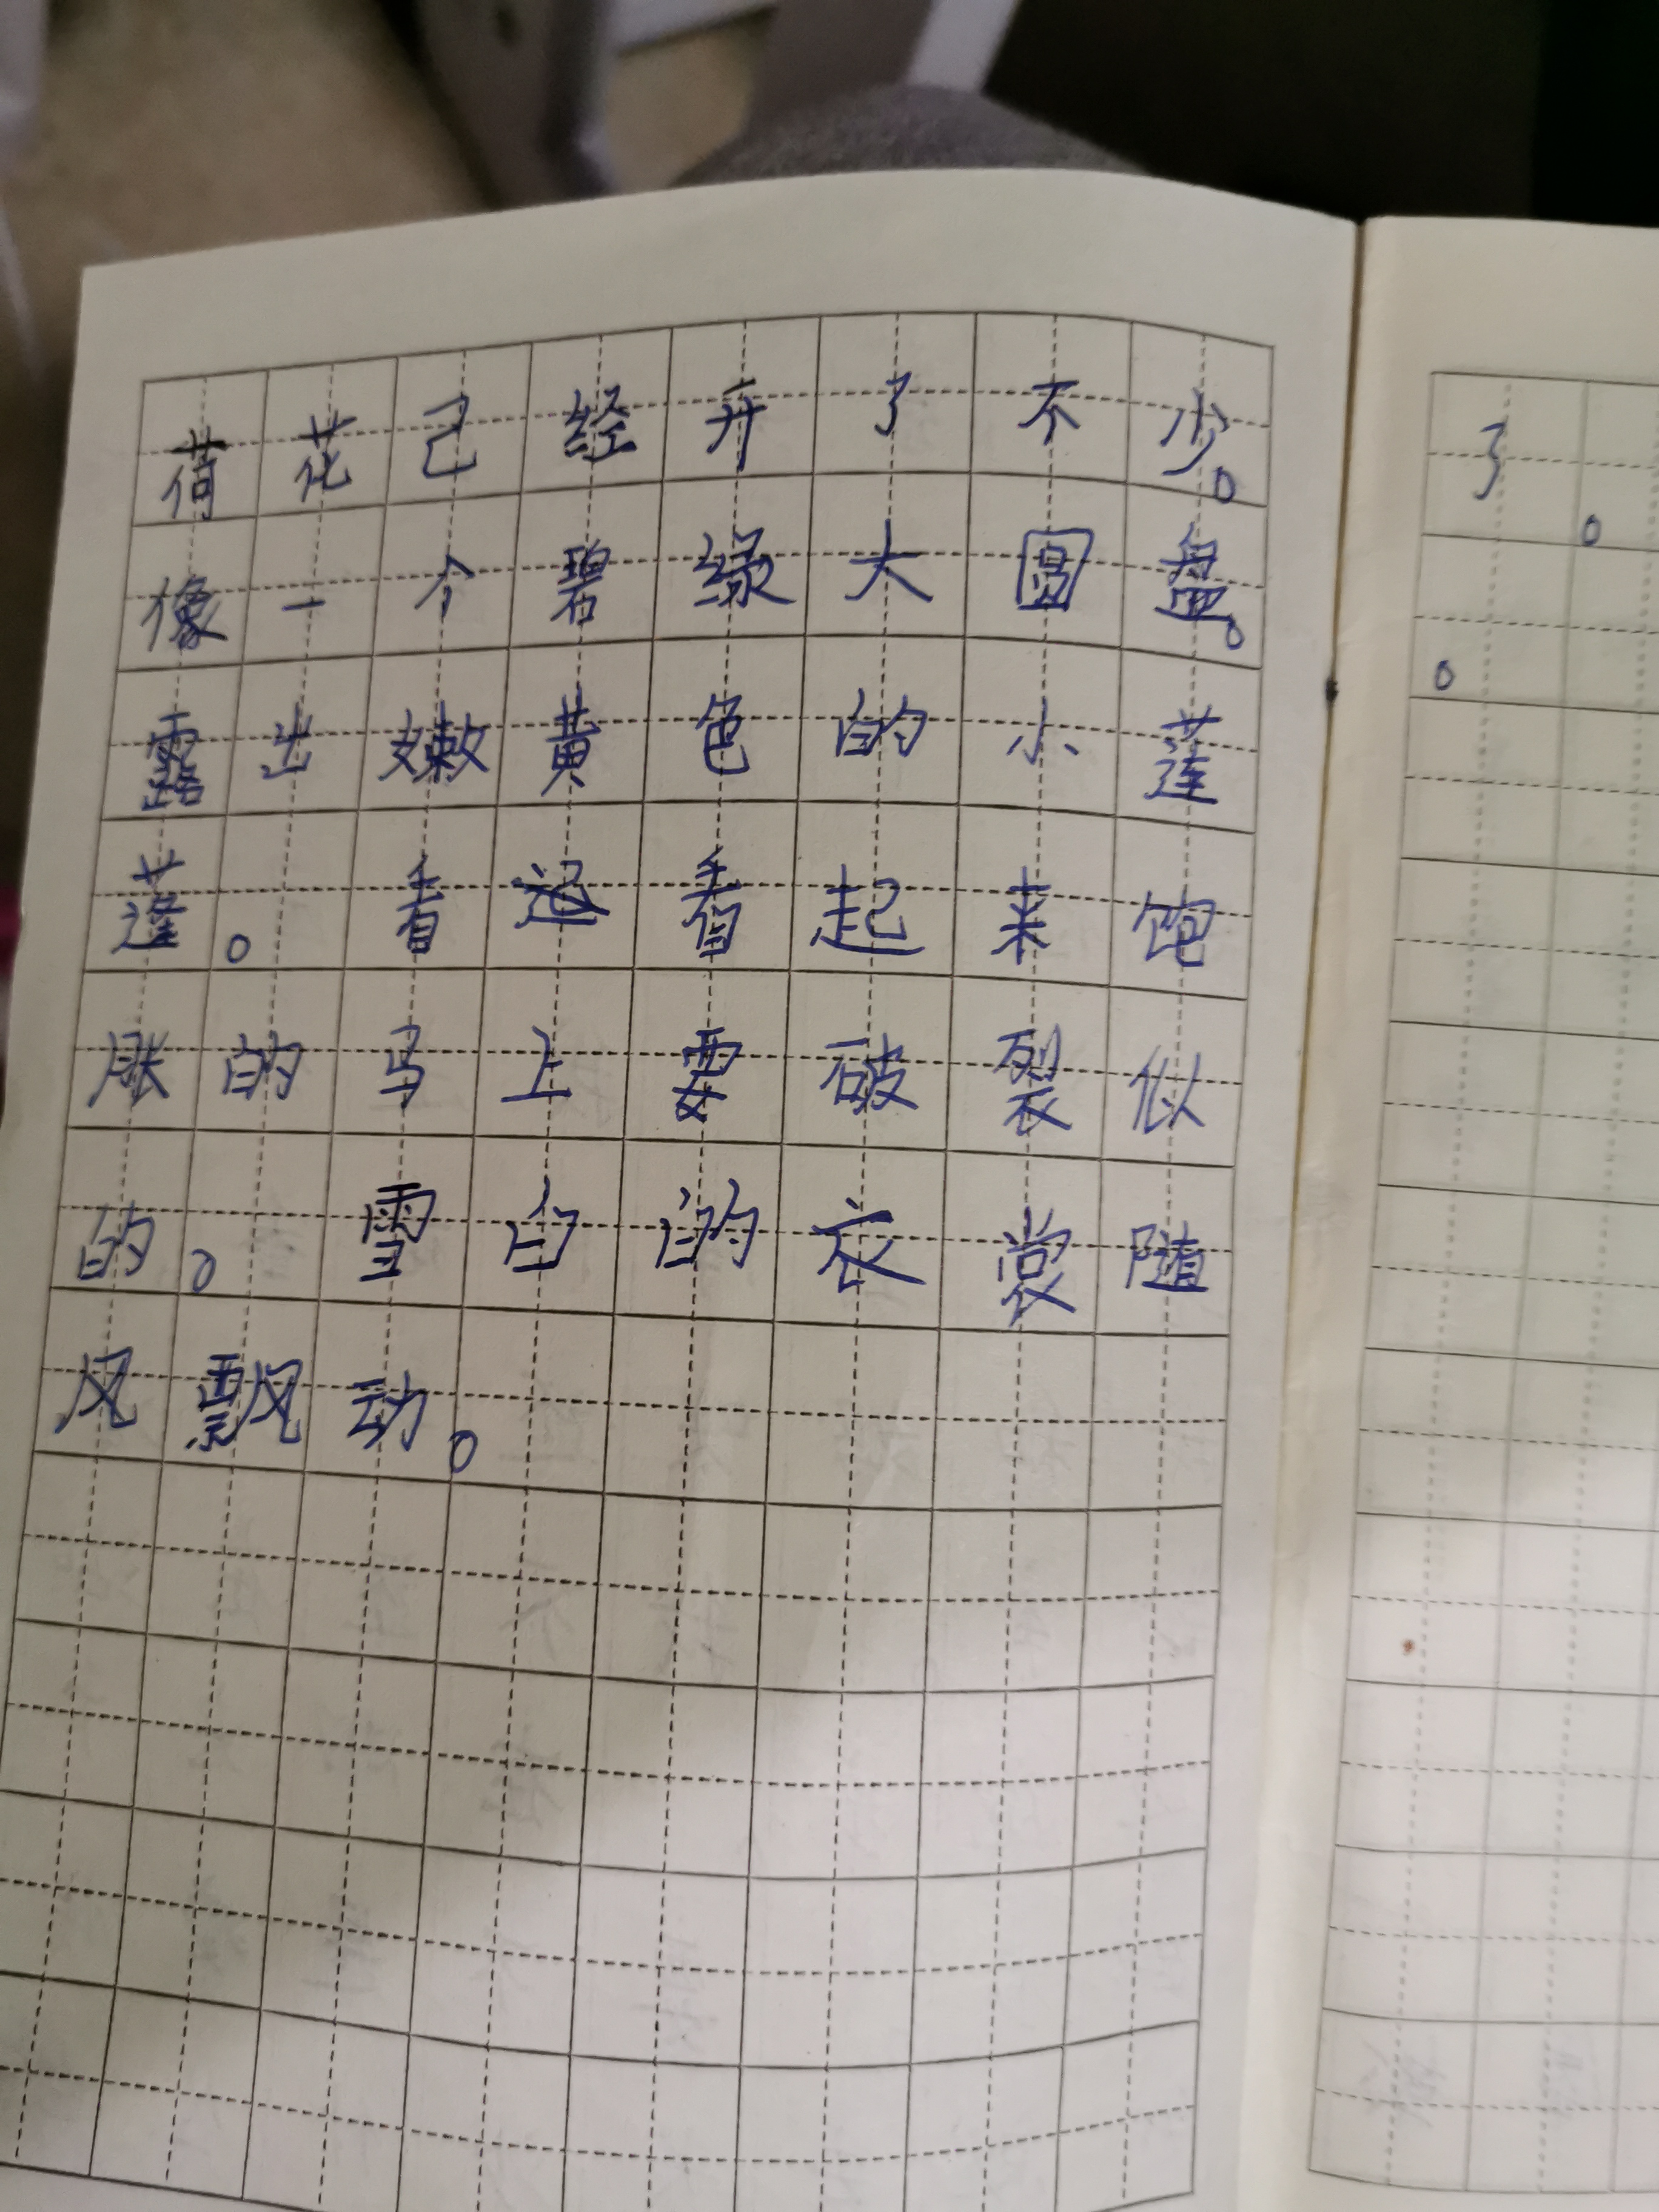 荷花己经开了不少。
像一个碧绿大圆盘。
露出嫩黄色的小莲
蓬。看看起来饱
胀的马上要破裂似
的。雪白的衣裳随
风飘动。
了。
。